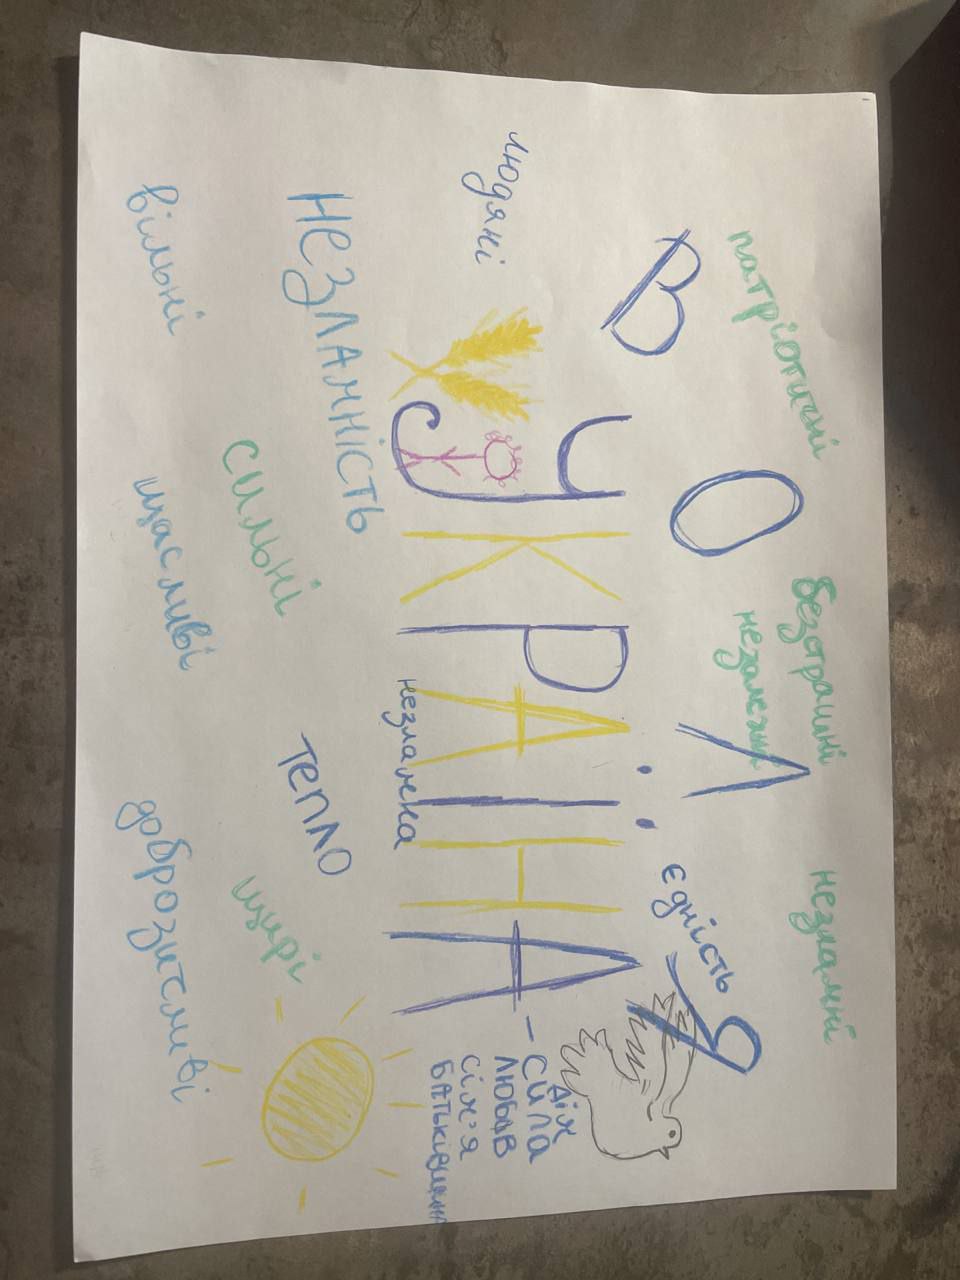 патріотичні
безстрашні
незалежні
незламні
ВОЛЯ
єдність
людяні
УКРАЇНА -
дім
СИЛА
ЛЮБОВ
СІМ'Я
БАТЬКІВЩИНА
незламна
НЕЗЛАМНІСТЬ
ТЕПЛО
сильні
щирі
вільні
щасливі
доброзичливі